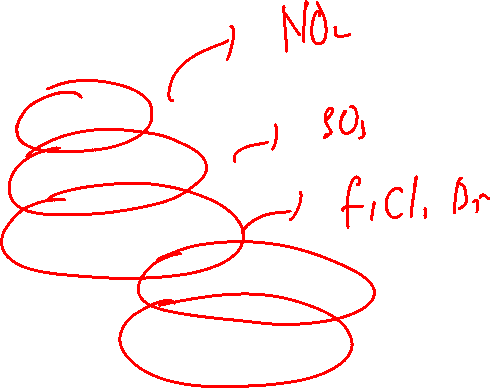 NO₂
SO₃
F, Cl, Br